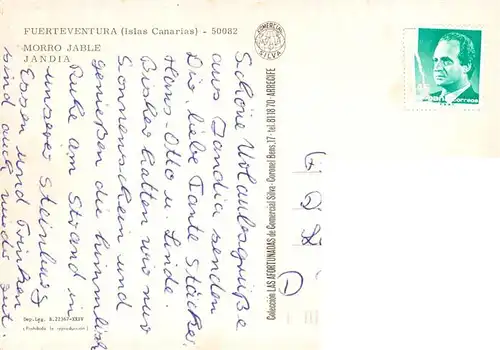 FUERTEVENTURA (Islas Canarias) - 50082
MORRO JABLE
JANDIA
COMERCIAL
SILVA
Correos
Schöne Urlaubsgrüße
aus Jandia senden
Dir, liebe Tante
Hans-Otto u. Linde.
Bisher hatten wir nur
Sonnenschein und
genießen die himmlische
Ruhe am Strand in
unserer
Essen und Trinken
sind auch wieder gut.
Colección LAS AFORTUNADAS de Comercial Silva - Coronel Bens, 17 - tel. 81 18 70 - ARRECIFE
Dep. Leg. B. 22367-XXIV
(Prohibida la reproducción)